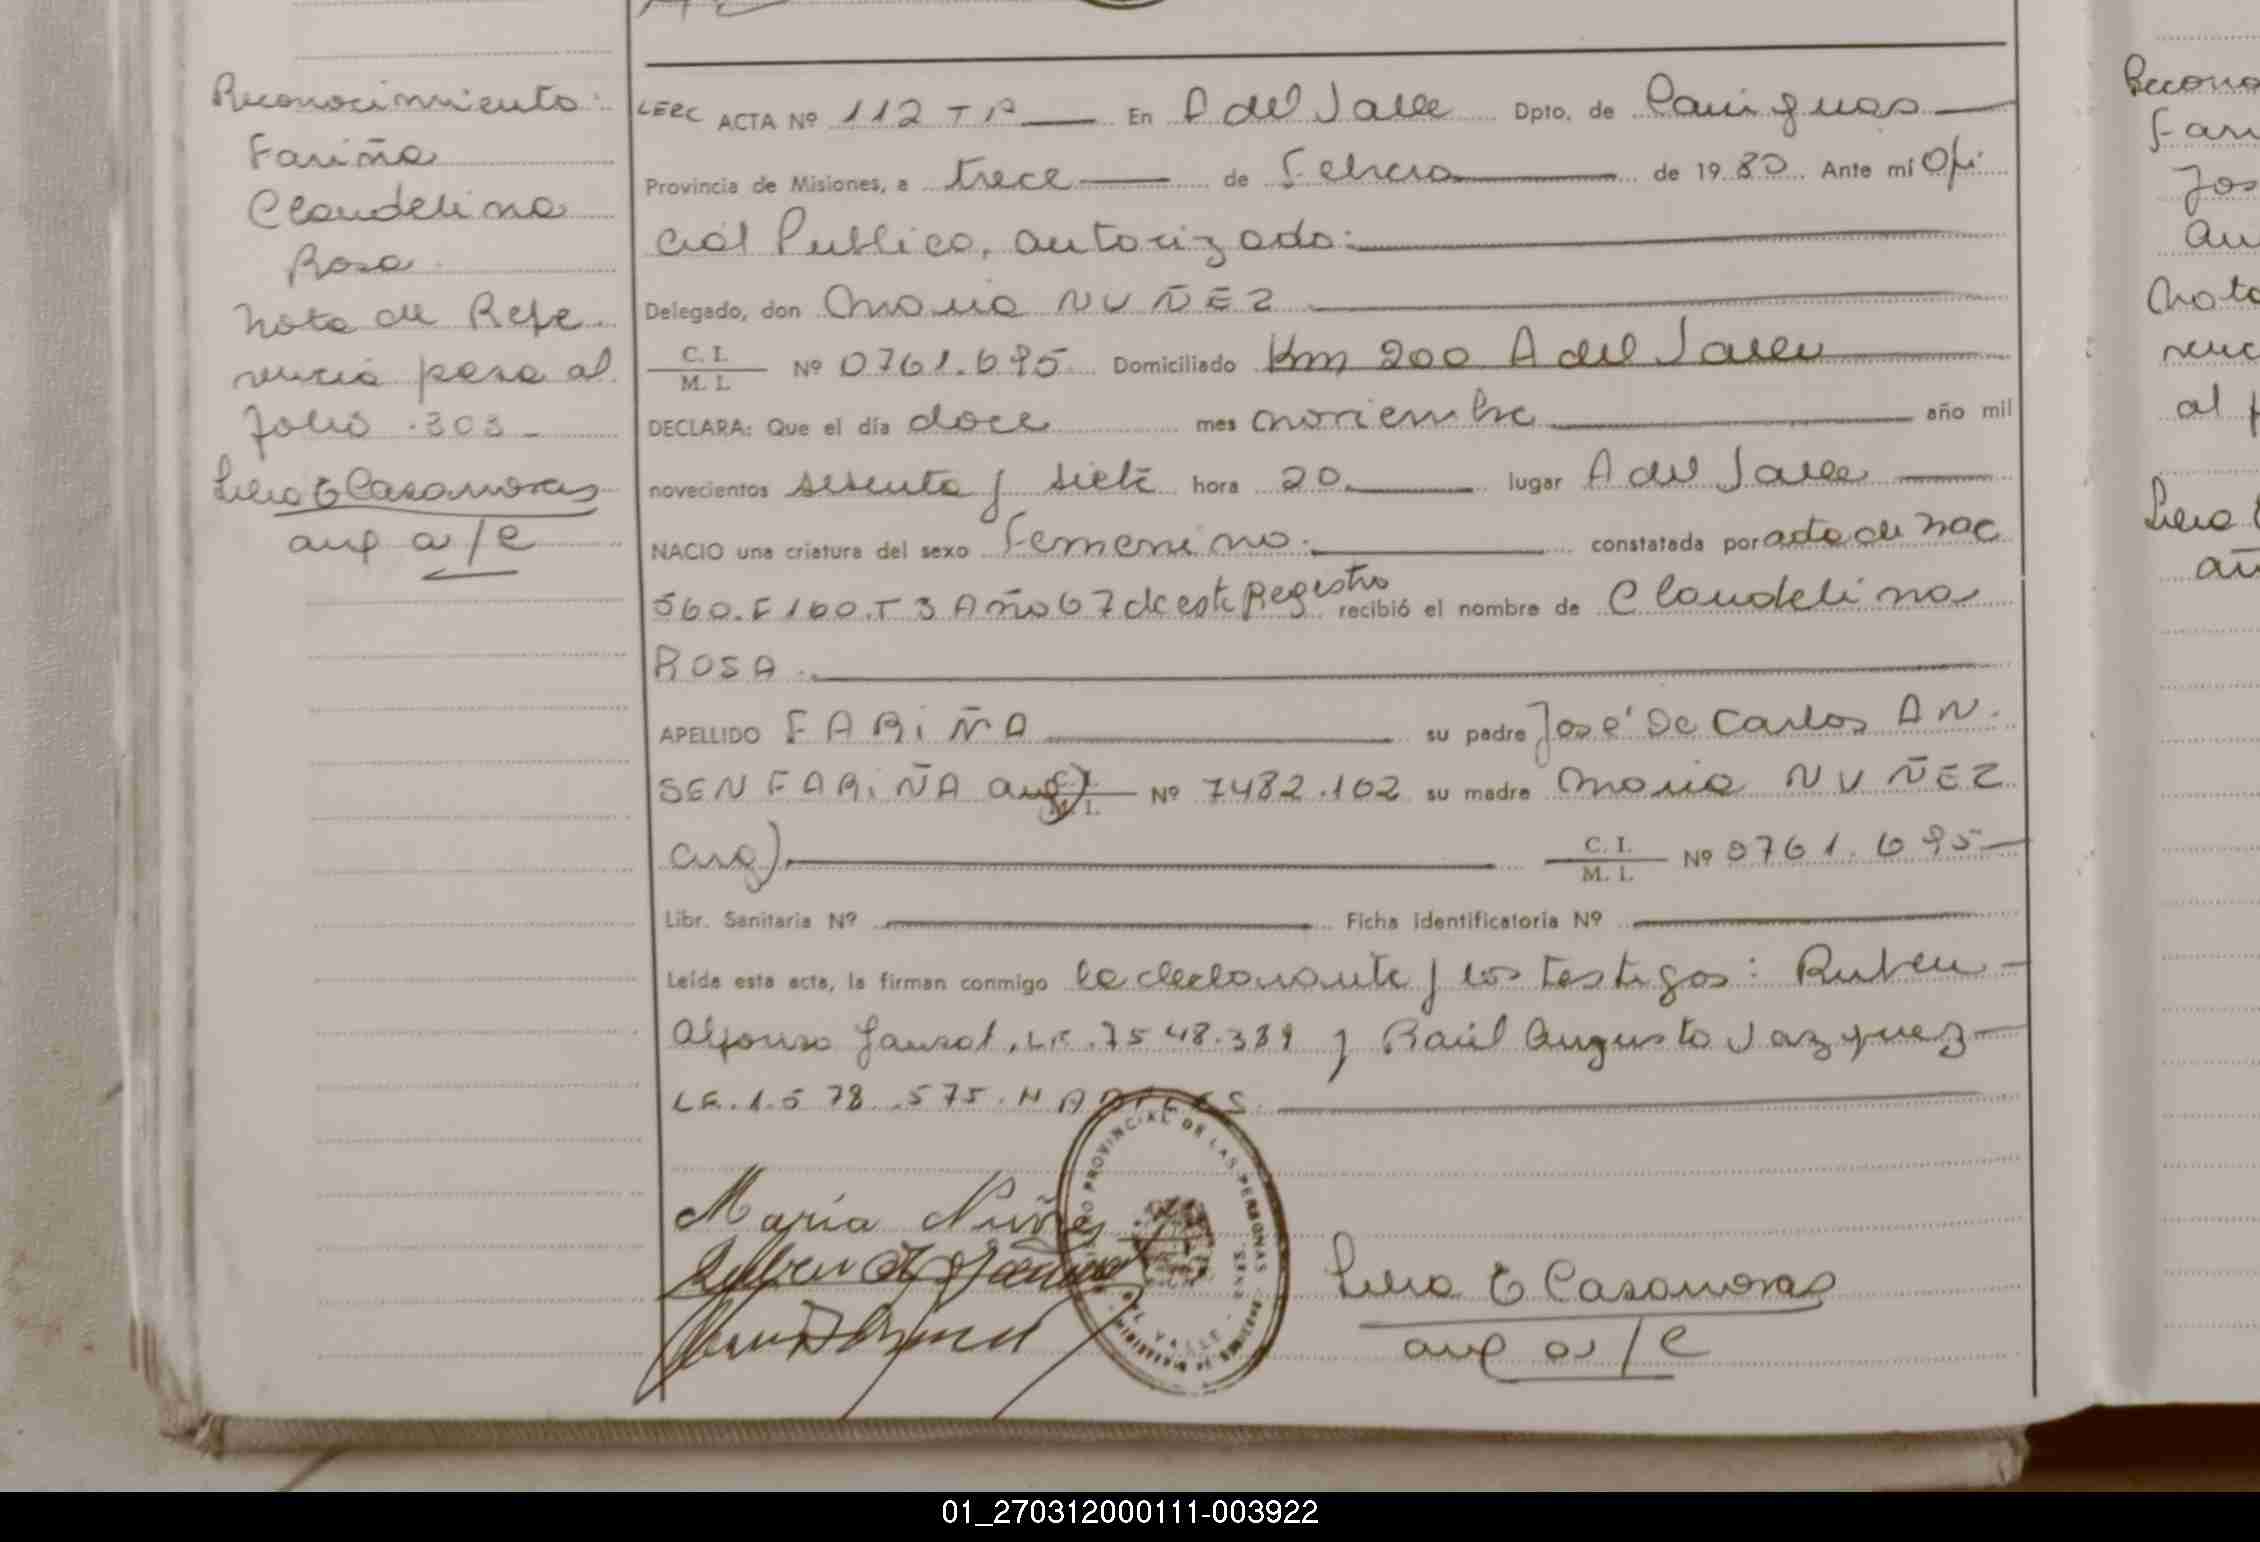 Reconocimiento:
Fariña
Claudelina
Rosa
Nota de Refe
rencia pasa al
folio 303-
Casanovas
LERC ACTA Nº 112 T A En A del Valle Dpto. de Cainguas
Provincia de Misiones, a trece de Febrero de 1980. Ante mi Ofi
cial Publico, autorizado:
Delegado, don Maria NUÑEZ
C. I.
M. I. Nº 0761.695 Domiciliado Km 200 A del Valle
DECLARA: Que el día doce mes noviembre año mil
novecientos sesenta y siete hora 20 lugar A del Valle
NACIO una criatura del sexo Femenino. constatada por acta de nac
560.F160.T3 Año 67 de este Registro recibió el nombre de Claudelina
ROSA
APELLIDO FARIÑA su padre José De Carlos AN
SEN FARIÑA arg) C. I. M. I. Nº 7482.102 su madre Maria NUÑEZ
arg) C. I. M. I. Nº 0761.695
Libr. Sanitaria Nº Ficha identificatoria Nº
Leída esta acta, la firman conmigo la declarante y los testigos: Ruben
Alfonso LE.7548.389 y Raúl Augusto Vazquez
LE.1.578.575. HABILES.
PROVINCIAL DE LAS PERSONAS
DEL VALLE
María Núñez
Casanovas
Recono
Fari
Jos
An
Nota
renc
al f